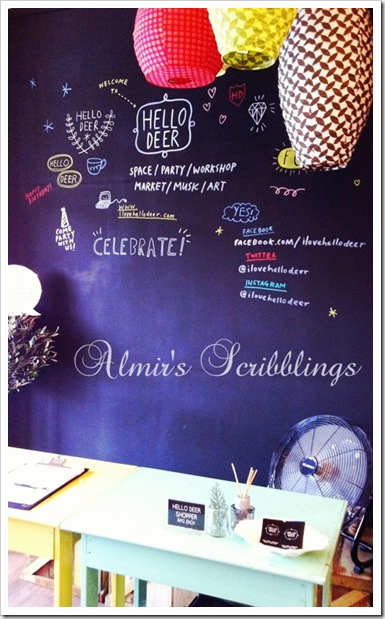 WELCOME TO
HELLO
DEER
HELLO
DEER
HD
HELLO
DEER
SPACE/PARTY/WORKSHOP
MARKET/MUSIC/ART
HAPPY BIRTHDAY!
WWW.
ilovehellodeer.com
YES!
COME
PARTY
WITH
US!
CELEBRATE!
FACEBOOK
FACEBOOK.COM/ilovehellodeer
TWITTER
@ilovehellodeer
INSTAGRAM
@ilovehellodeer
Almir's Scribblings
HELLO DEER
SHOPPER